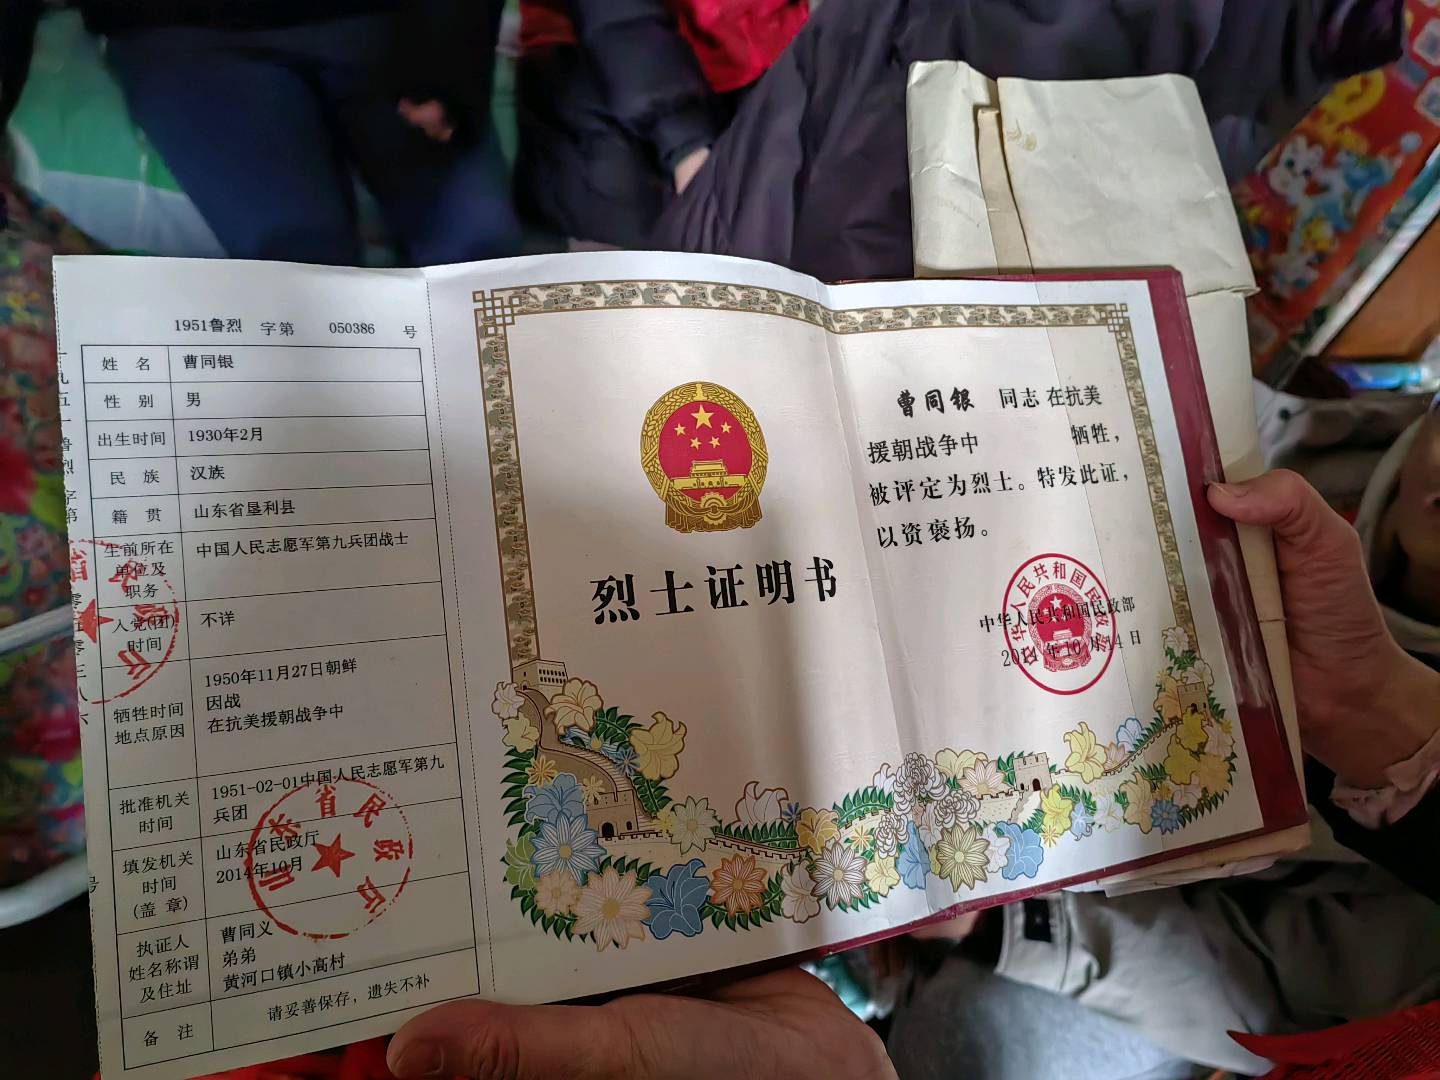 1951鲁烈 字第 050386 号
姓 名 曹同银
性 别 男
出生时间 1930年2月
民 族 汉族
籍 贯 山东省垦利县
生前所在
单位及
职务
中国人民志愿军第九兵团战士
入党(团)
时间
不详
牺牲时间
地点原因
1950年11月27日朝鲜
因战
在抗美援朝战争中
批准机关
时间
1951-02-01中国人民志愿军第九
兵团
填发机关
时间
(盖 章)
山东省民政厅
2014年10月
执证人
姓名称谓
及住址
曹同义
弟弟
黄河口镇小高村
备 注 请妥善保存，遗失不补
烈士证明书
曹同银 同志 在抗美
援朝战争中 牺牲，
被评定为烈士。特发此证，
以资褒扬。
中华人民共和国民政部
2014年10月14日
中华人民共和国民政部